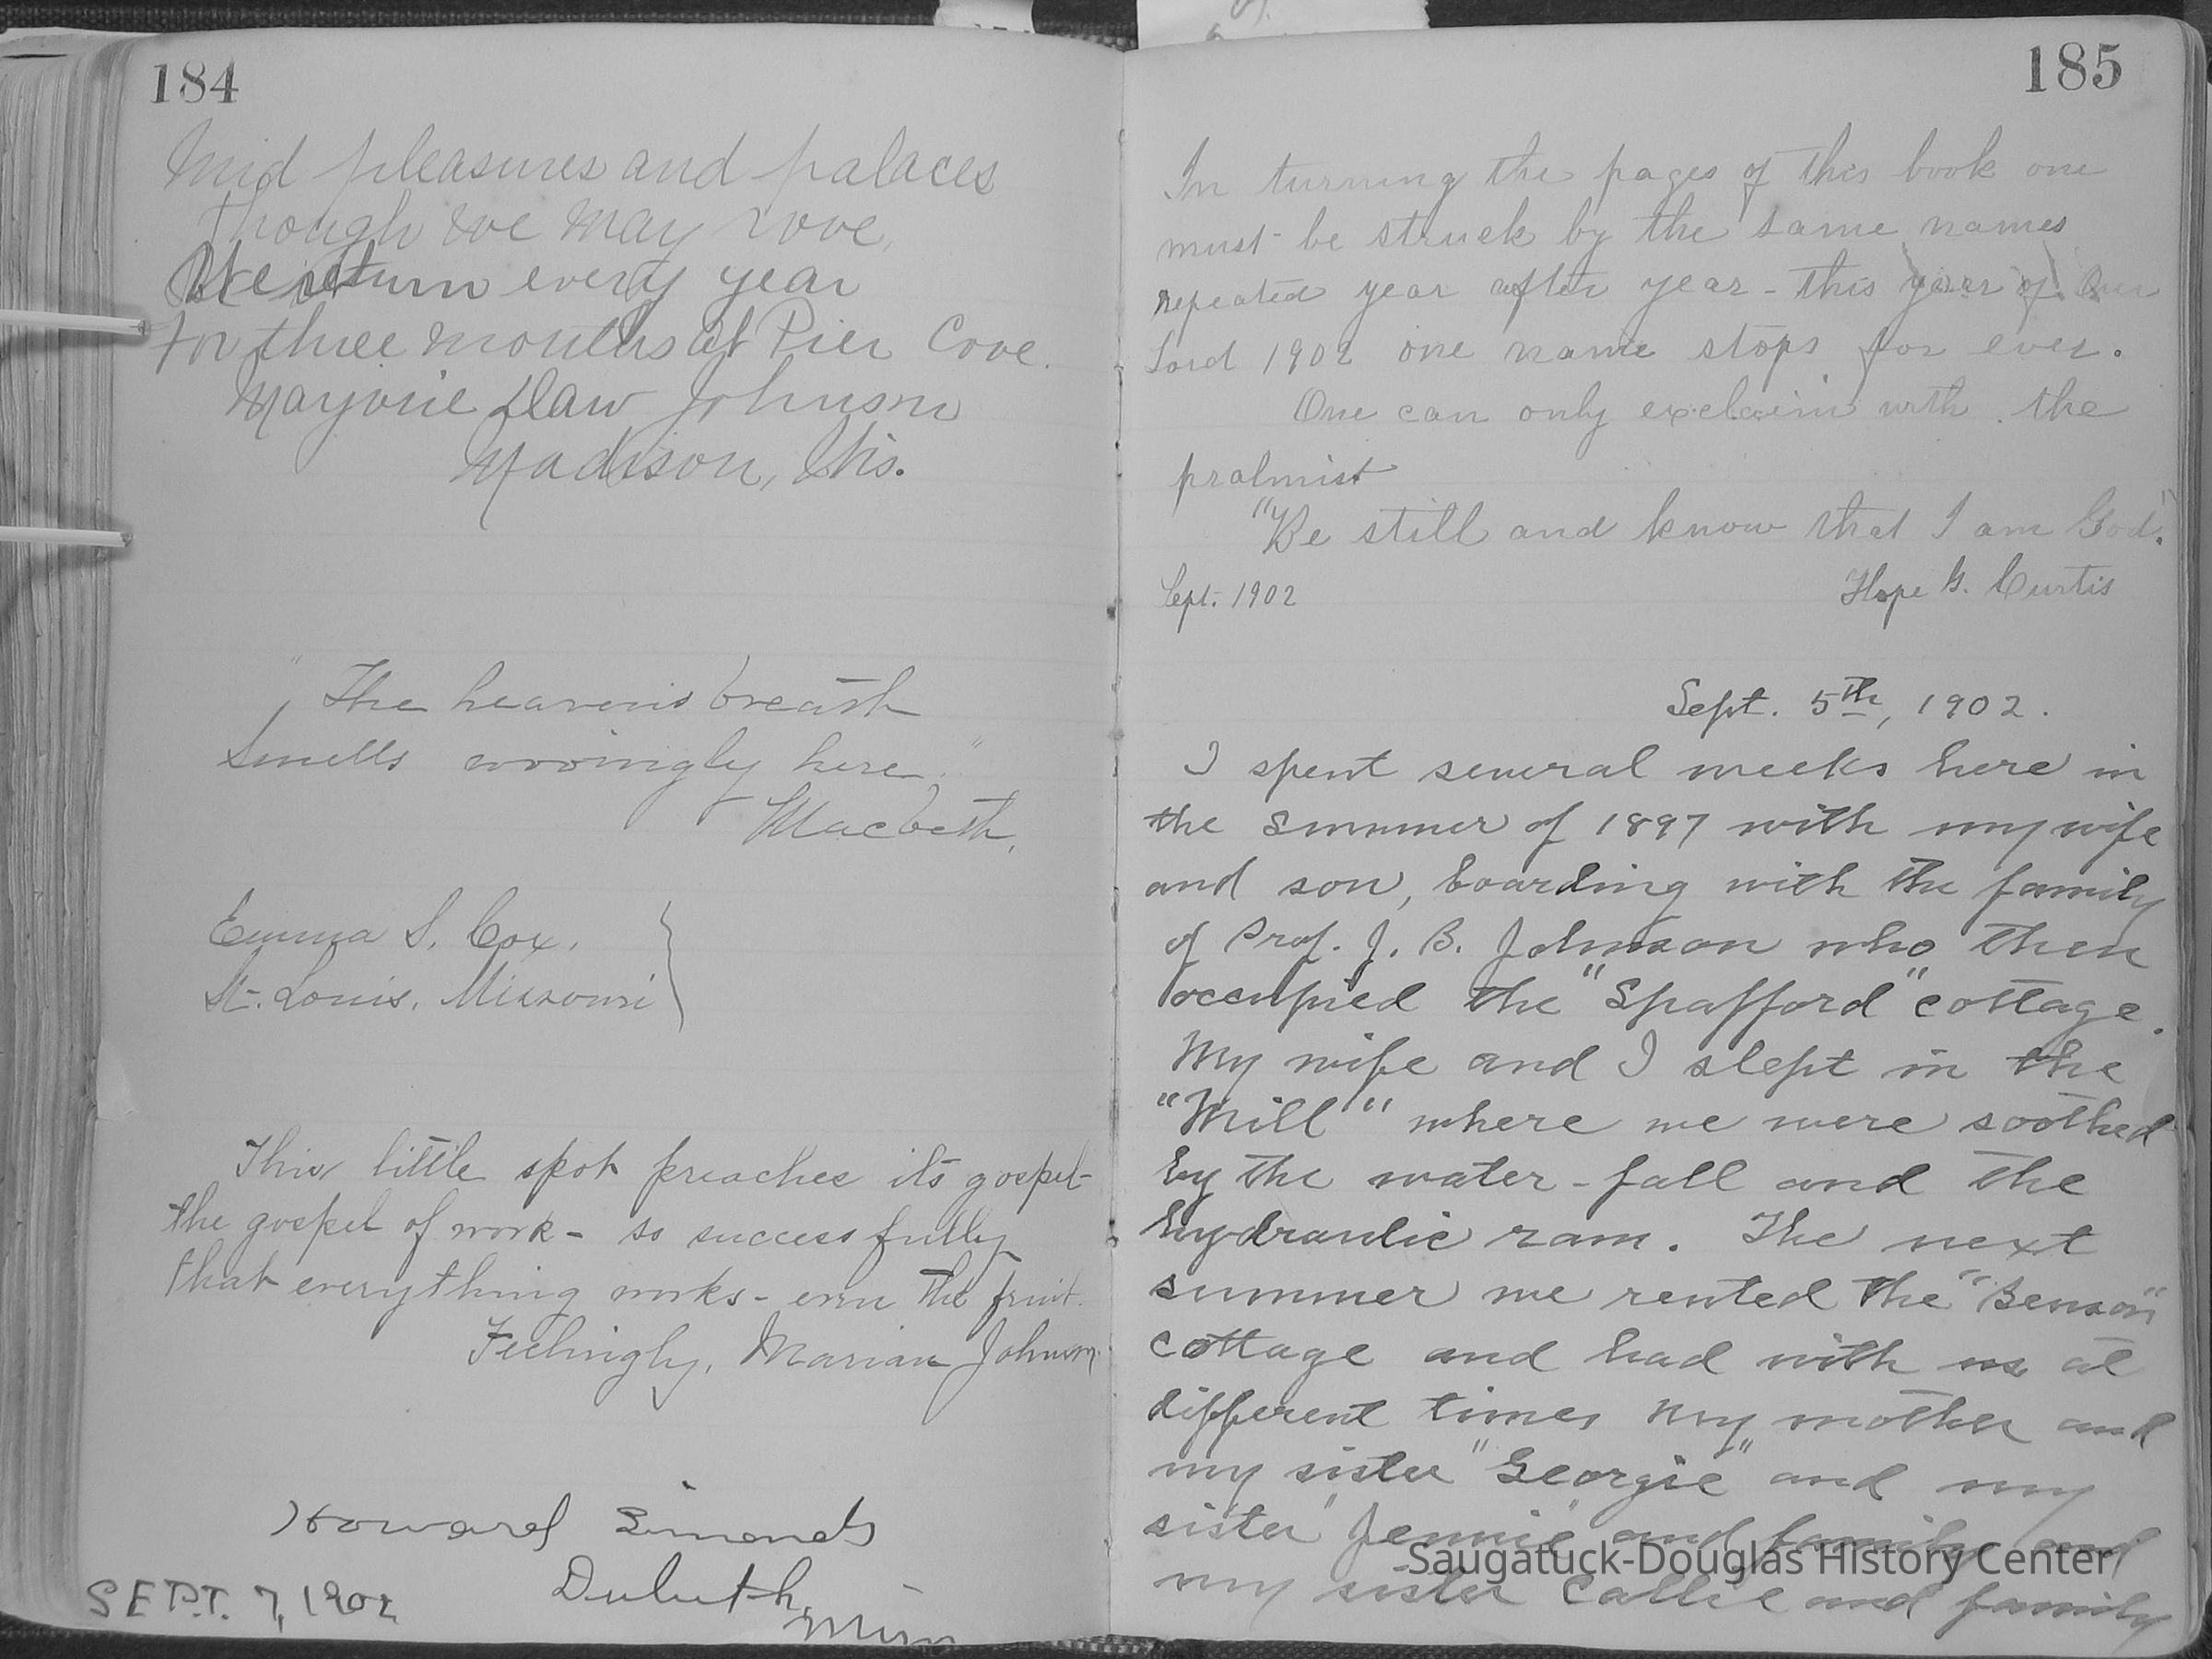 184
Mid pleasures and palaces
though we may rove,
We return every year
For three months at Pier Cove.
Marjorie Daw Johnson
Madison, Wis.
"The heaven's breath
Smells wooingly here."
Macbeth.
Emma S. Cox.
St. Louis, Missouri
This little spot preaches its gospel-
the gospel of work - so successfully
that everything works - even the fruit.
Feelingly, Marian Johnson.
Howard Simonds
Duluth,
Minn
SEPT. 7, 1902
185
In turning the pages of this book one
must be struck by the same names
repeated year after year - this year of Our
Lord 1902 one name stops for ever.
One can only exclaim with the
psalmist
"Be still and know that I am God".
Sept. 1902 Hope G. Curtis
Sept. 5th, 1902.
I spent several weeks here in
the summer of 1897 with my wife
and son, boarding with the family
of Prof. J. B. Johnson who then
occupied the "Spafford" cottage.
My wife and I slept in the
"Mill" where we were soothed
by the water-fall and the
hydraulic ram. The next
summer we rented the "Benson"
cottage and had with us at
different times my mother and
my sister "Georgie" and my
sister "Jennie" and family and
my sister Callie and family
Saugatuck-Douglas History Center